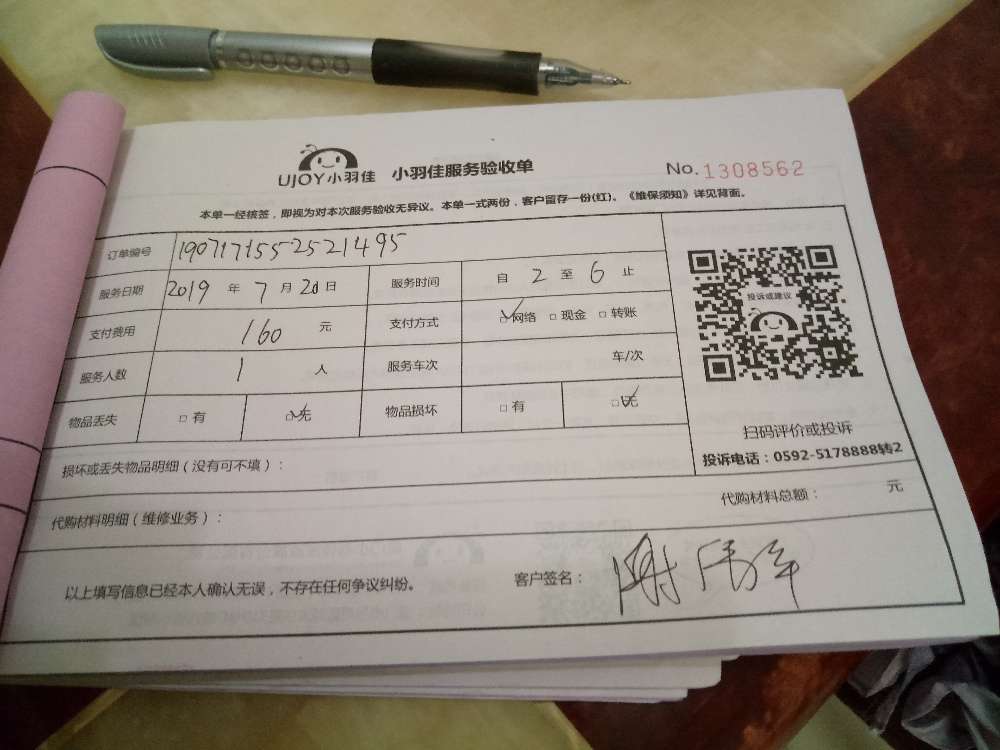 UJOY小羽佳 小羽佳服务验收单 No.1308562
本单一经核签，即视为对本次服务验收无异议。本单一式两份，客户留存一份(红)。《维保须知》详见背面。
订单编号 1907171552521495
服务日期 2019 年 7 月 20 日 服务时间 自 2 至 6 止
支付费用 160 元 支付方式 ☑网络 □现金 □转账
服务人数 1 人 服务车次 车/次
物品丢失 □有 ☑无 物品损坏 □有 ☑无
投诉或建议
扫码评价或投诉
投诉电话：0592-5178888转2
损坏或丢失物品明细（没有可不填）：
代购材料明细（维修业务）： 代购材料总额： 元
以上填写信息已经本人确认无误，不存在任何争议纠纷。 客户签名： 谢